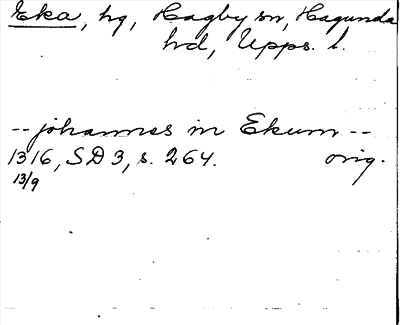 Eka, hg, Hagby sn, Hagunda
hd, Upps. l.
-- johannes in Ekum --
1316, SD 3, s. 264. orig.
13/9